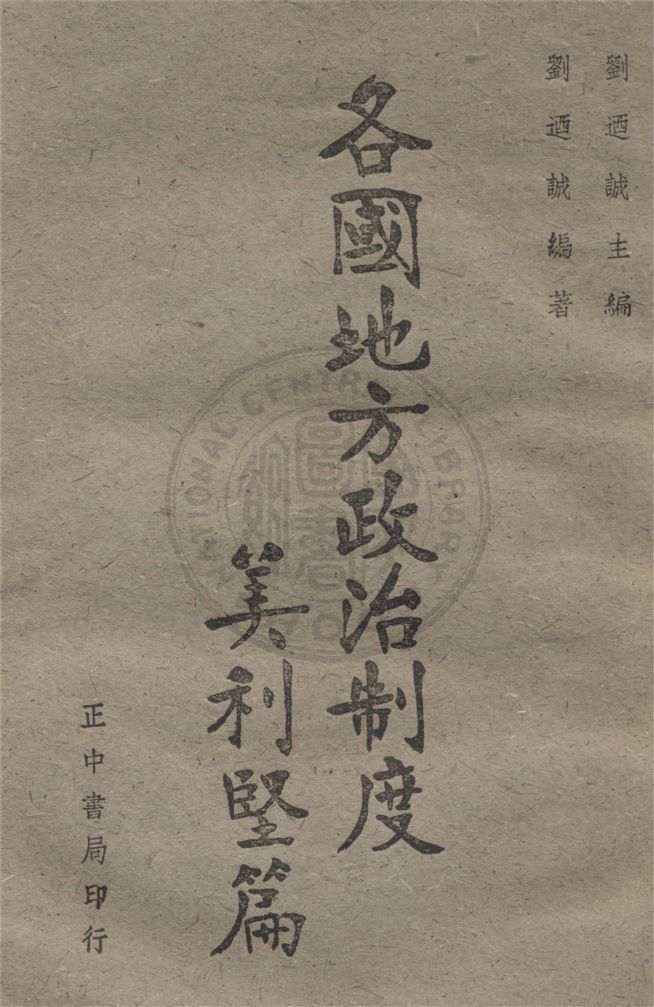 劉迺誠主編
劉迺誠編著
各國地方政治制度
美利堅篇
正中書局印行
NATIONAL CENTRAL LIBRARY